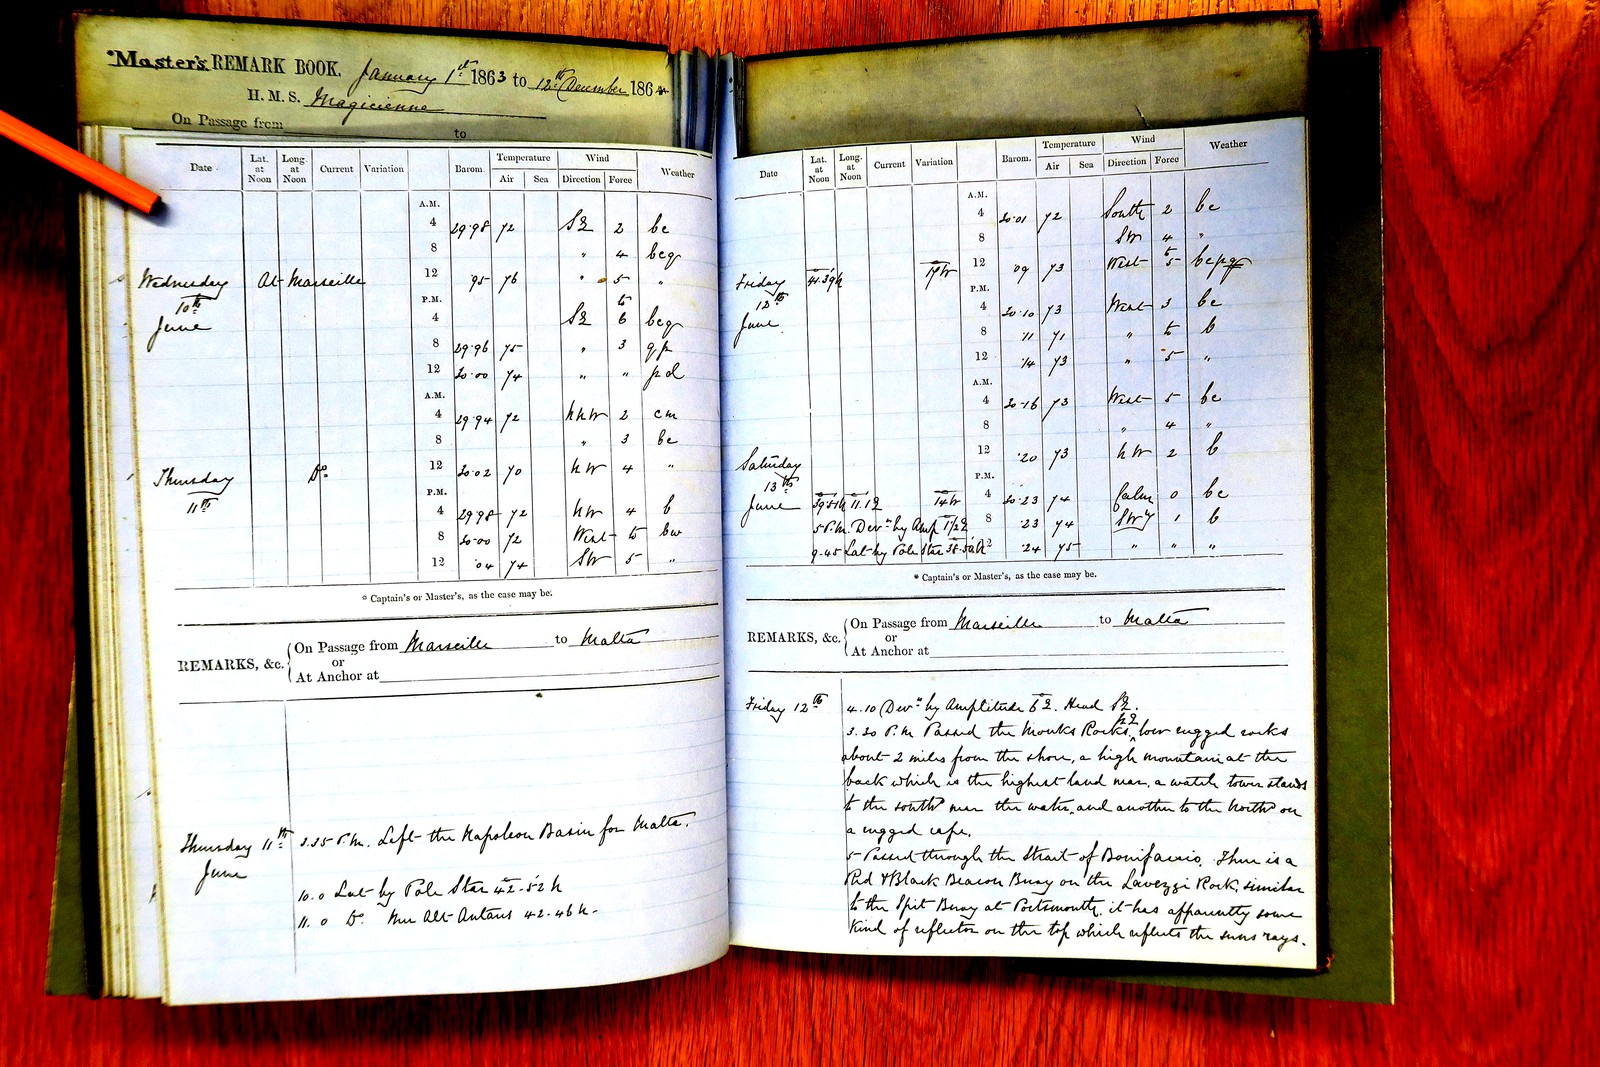 *Master's REMARK BOOK. January 1st 1863 to 12th December 186
H.M.S. Magicienne
On Passage from to
Date Lat. at Noon Long. at Noon Current Variation Barom. Temperature Air Sea Wind Direction Force Weather
A.M.
4 29.98 72 SE 2 bc
8 " 4 bcq
Wednesday At Marseille 12 95 76 " 5 "
10th
June
P.M.
4 SE 5 to 6 bcq
8 29.96 75 " 3 qp
12 30.00 74 " " pd
A.M.
4 29.94 72 NNW 2 cm
8 " 3 bc
Thursday Do. 12 30.02 70 NW 4 "
11th
P.M.
4 29.98 72 NW 4 b
8 30.00 72 West to bw
12 .04 74 SW 5 "
* Captain's or Master's, as the case may be.
REMARKS, &c. On Passage from Marseille to Malta
or
At Anchor at
Thursday 11th June 3.35 P.M. Left the Napoleon Basin for Malta.
10.0 Lat by Pole Star 42.52 N
11.0 Do. Mer Alt Antares 42.46 N.
Date Lat. at Noon Long. at Noon Current Variation Barom. Temperature Air Sea Wind Direction Force Weather
A.M.
4 30.01 72 South 2 bc
8 SW 4 "
Friday 41.39N 17W 12 .09 73 West to 5 bcpq
12th
June
P.M.
4 30.10 73 West 3 bc
8 11 71 " to b
12 .14 73 " 5 "
A.M.
4 30.16 73 West 5 bc
8 " 4 "
12 .20 73 NW 2 b
Saturday
13th
June
P.M.
39.51N 11.12 14W 4 30.23 74 Calm 0 bc
5 P.M. Devn. by Amp 1/2E 8 .23 74 SWly 1 b
9.45 Lat by Pole Star 38.50N 12 .24 75 " " "
* Captain's or Master's, as the case may be.
REMARKS, &c. On Passage from Marseille to Malta
or
At Anchor at
Friday 12th 4.10 Devn. by Amplitude E. Head SE.
3.30 P.M. Passed the Monks Rocks, low rugged rocks
about 2 miles from the shore, a high mountain at the
back which is the highest land near, a watch tower stands
to the southd near the water, and another to the Northd on
a rugged cape.
5 Passed through the Strait of Bonifacio. There is a
Red & Black Beacon Buoy on the Lavezzi Rock, similar
to the Spit Buoy at Portsmouth, it has apparently some
kind of reflector on the top which reflects the suns rays.